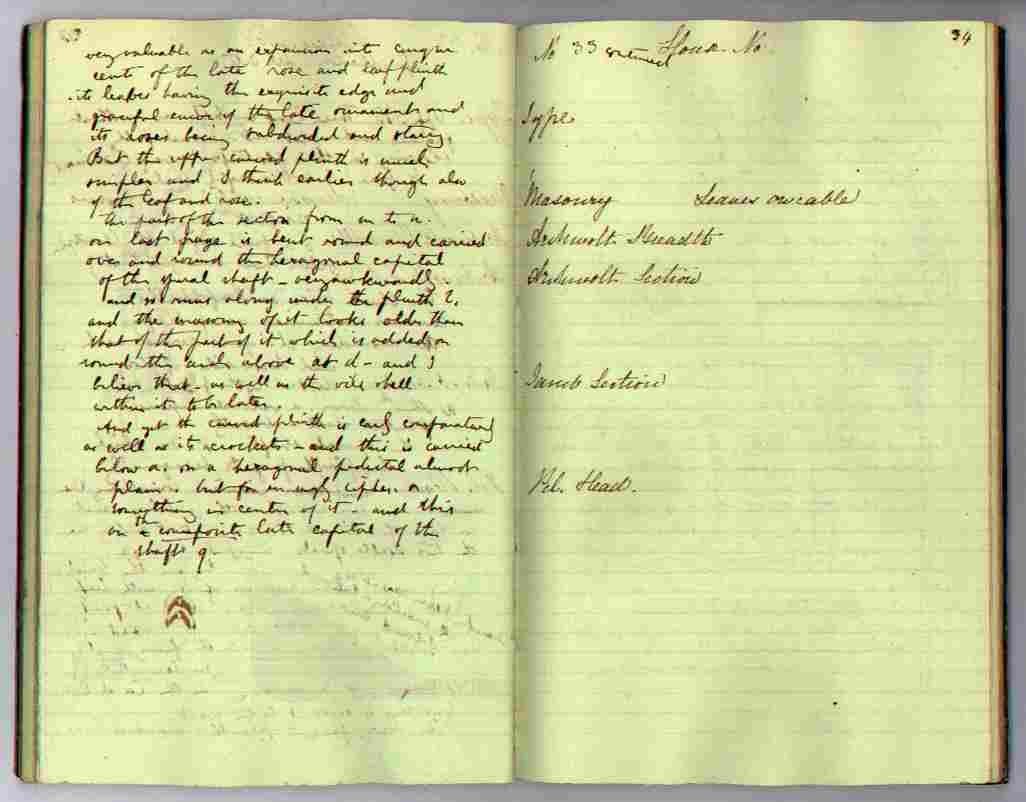 very valuable as an expansion into cinque
cento of the late rose and leaf plinth
its leaves having the exquisite edge and
graceful curve of the late ornaments and
its roses being subdivided and starry.
But the upper carved plinth is much
simpler and I think earlier though also
of the leaf and rose.
The part of the section from m to n.
on last page is bent round and carried
over and round the hexagonal capital
of the spiral shaft - very awkwardly.
and so runs along under the plinth
and the masonry of it looks older than
that of the part of it which is added on
round the arch above at d - and I
believe that - as well as the vile shell
within it to be later.
And yet the carved plinth is early comparatively
as well as its crockets - and this is carried
below a. on a hexagonal pedestal almost
plain. but for an ugly cipher or
something in center of it - and this
on the composite late capital of the
shaft q.
34
No 33 House No
Type
Masonry Leaves on cable
Archivolt Breadth
Archivolt Section
Jamb Section
Pil. Head.